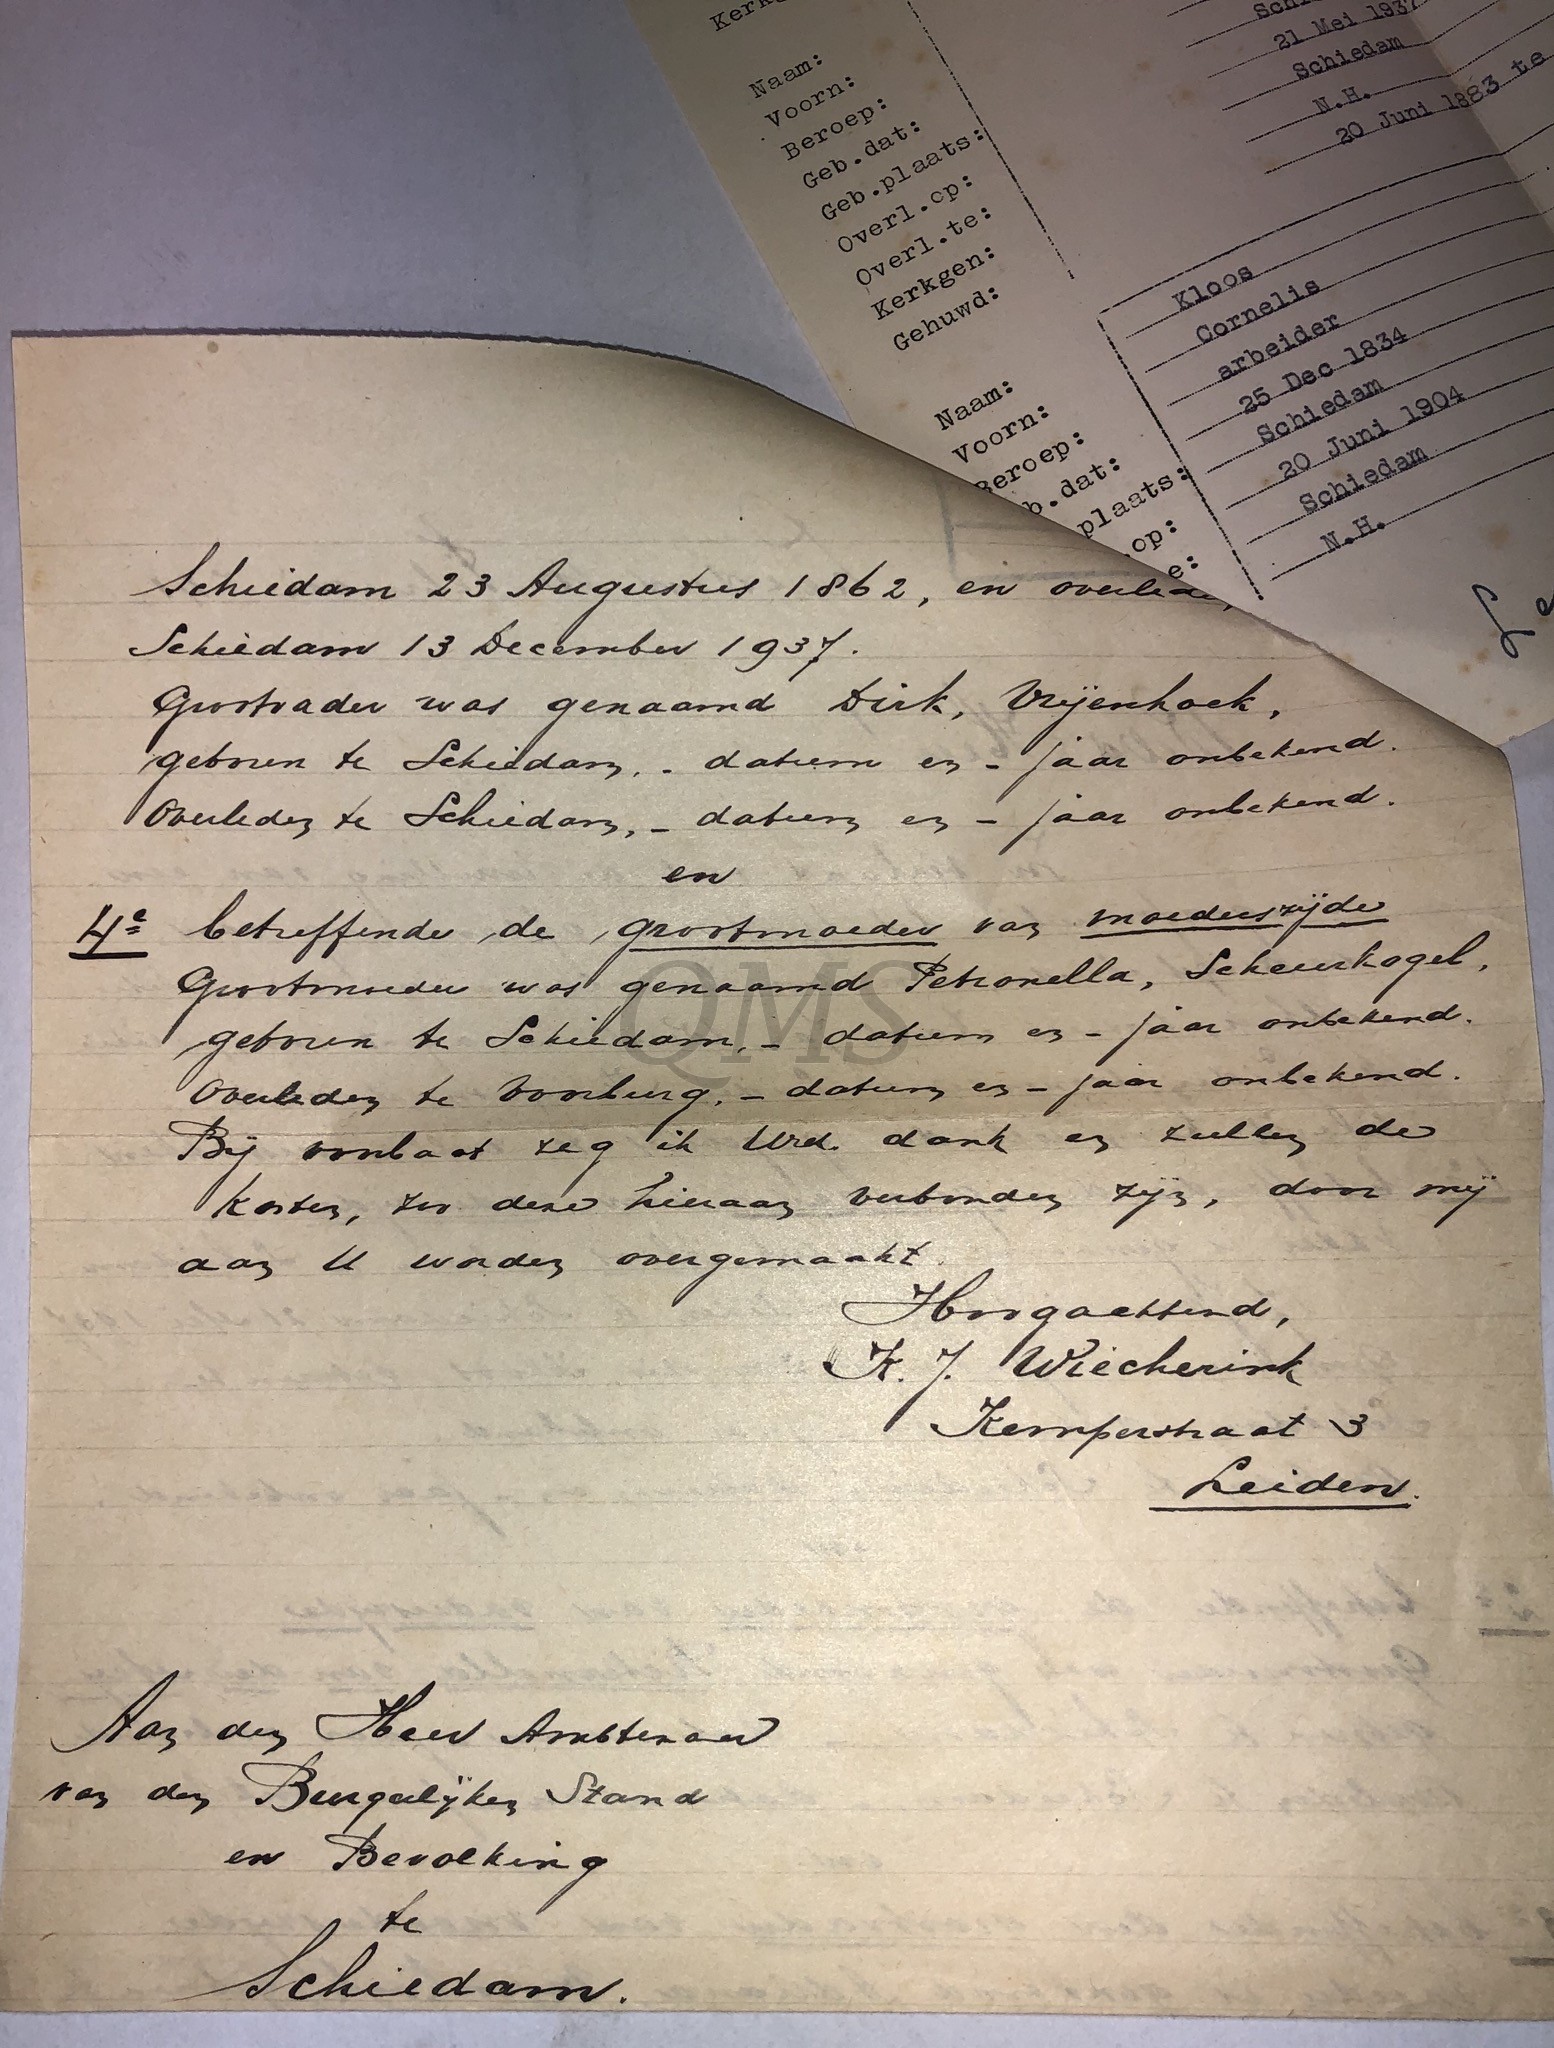 Naam:
Voorn:
Beroep:
Geb.dat:
Geb.plaats:
Overl.op:
Overl.te:
Kerkgen:
Gehuwd:
21 Mei 1937
Schiedam
N.H.
20 Juni 1883 te
Naam:
Voorn:
Beroep:
b.dat:
plaats:
op:
e:
Kloos
Cornelis
arbeider
25 Dec 1834
Schiedam
20 Juni 1904
Schiedam
N.H.
Schiedam 23 Augustus 1862, en
Schiedam 13 December 1937.
Grootvader was genaamd Dirk, Vrijenhoek,
geboren te Schiedam, - datum en - jaar onbekend.
Overleden te Schiedam, - datum en - jaar onbekend.
en
4e betreffende de grootmoeder van moederszijde
Grootmoeder was genaamd Petronella, Scheurkogel,
geboren te Schiedam, - datum en - jaar onbekend.
Overleden te Voorburg, - datum en - jaar onbekend.
Bij voorbaat zeg ik Ued. dank en zullen de
kosten, zoo deze hieraan verbonden zijn, door mij
aan U worden overgemaakt.
Hoogachtend,
K. J. Wiecherink
Kemperstraat 3
Leiden.
Aan den Heer Ambtenaar
van den Burgerlijken Stand
en Bevolking
te
Schiedam.
QMS